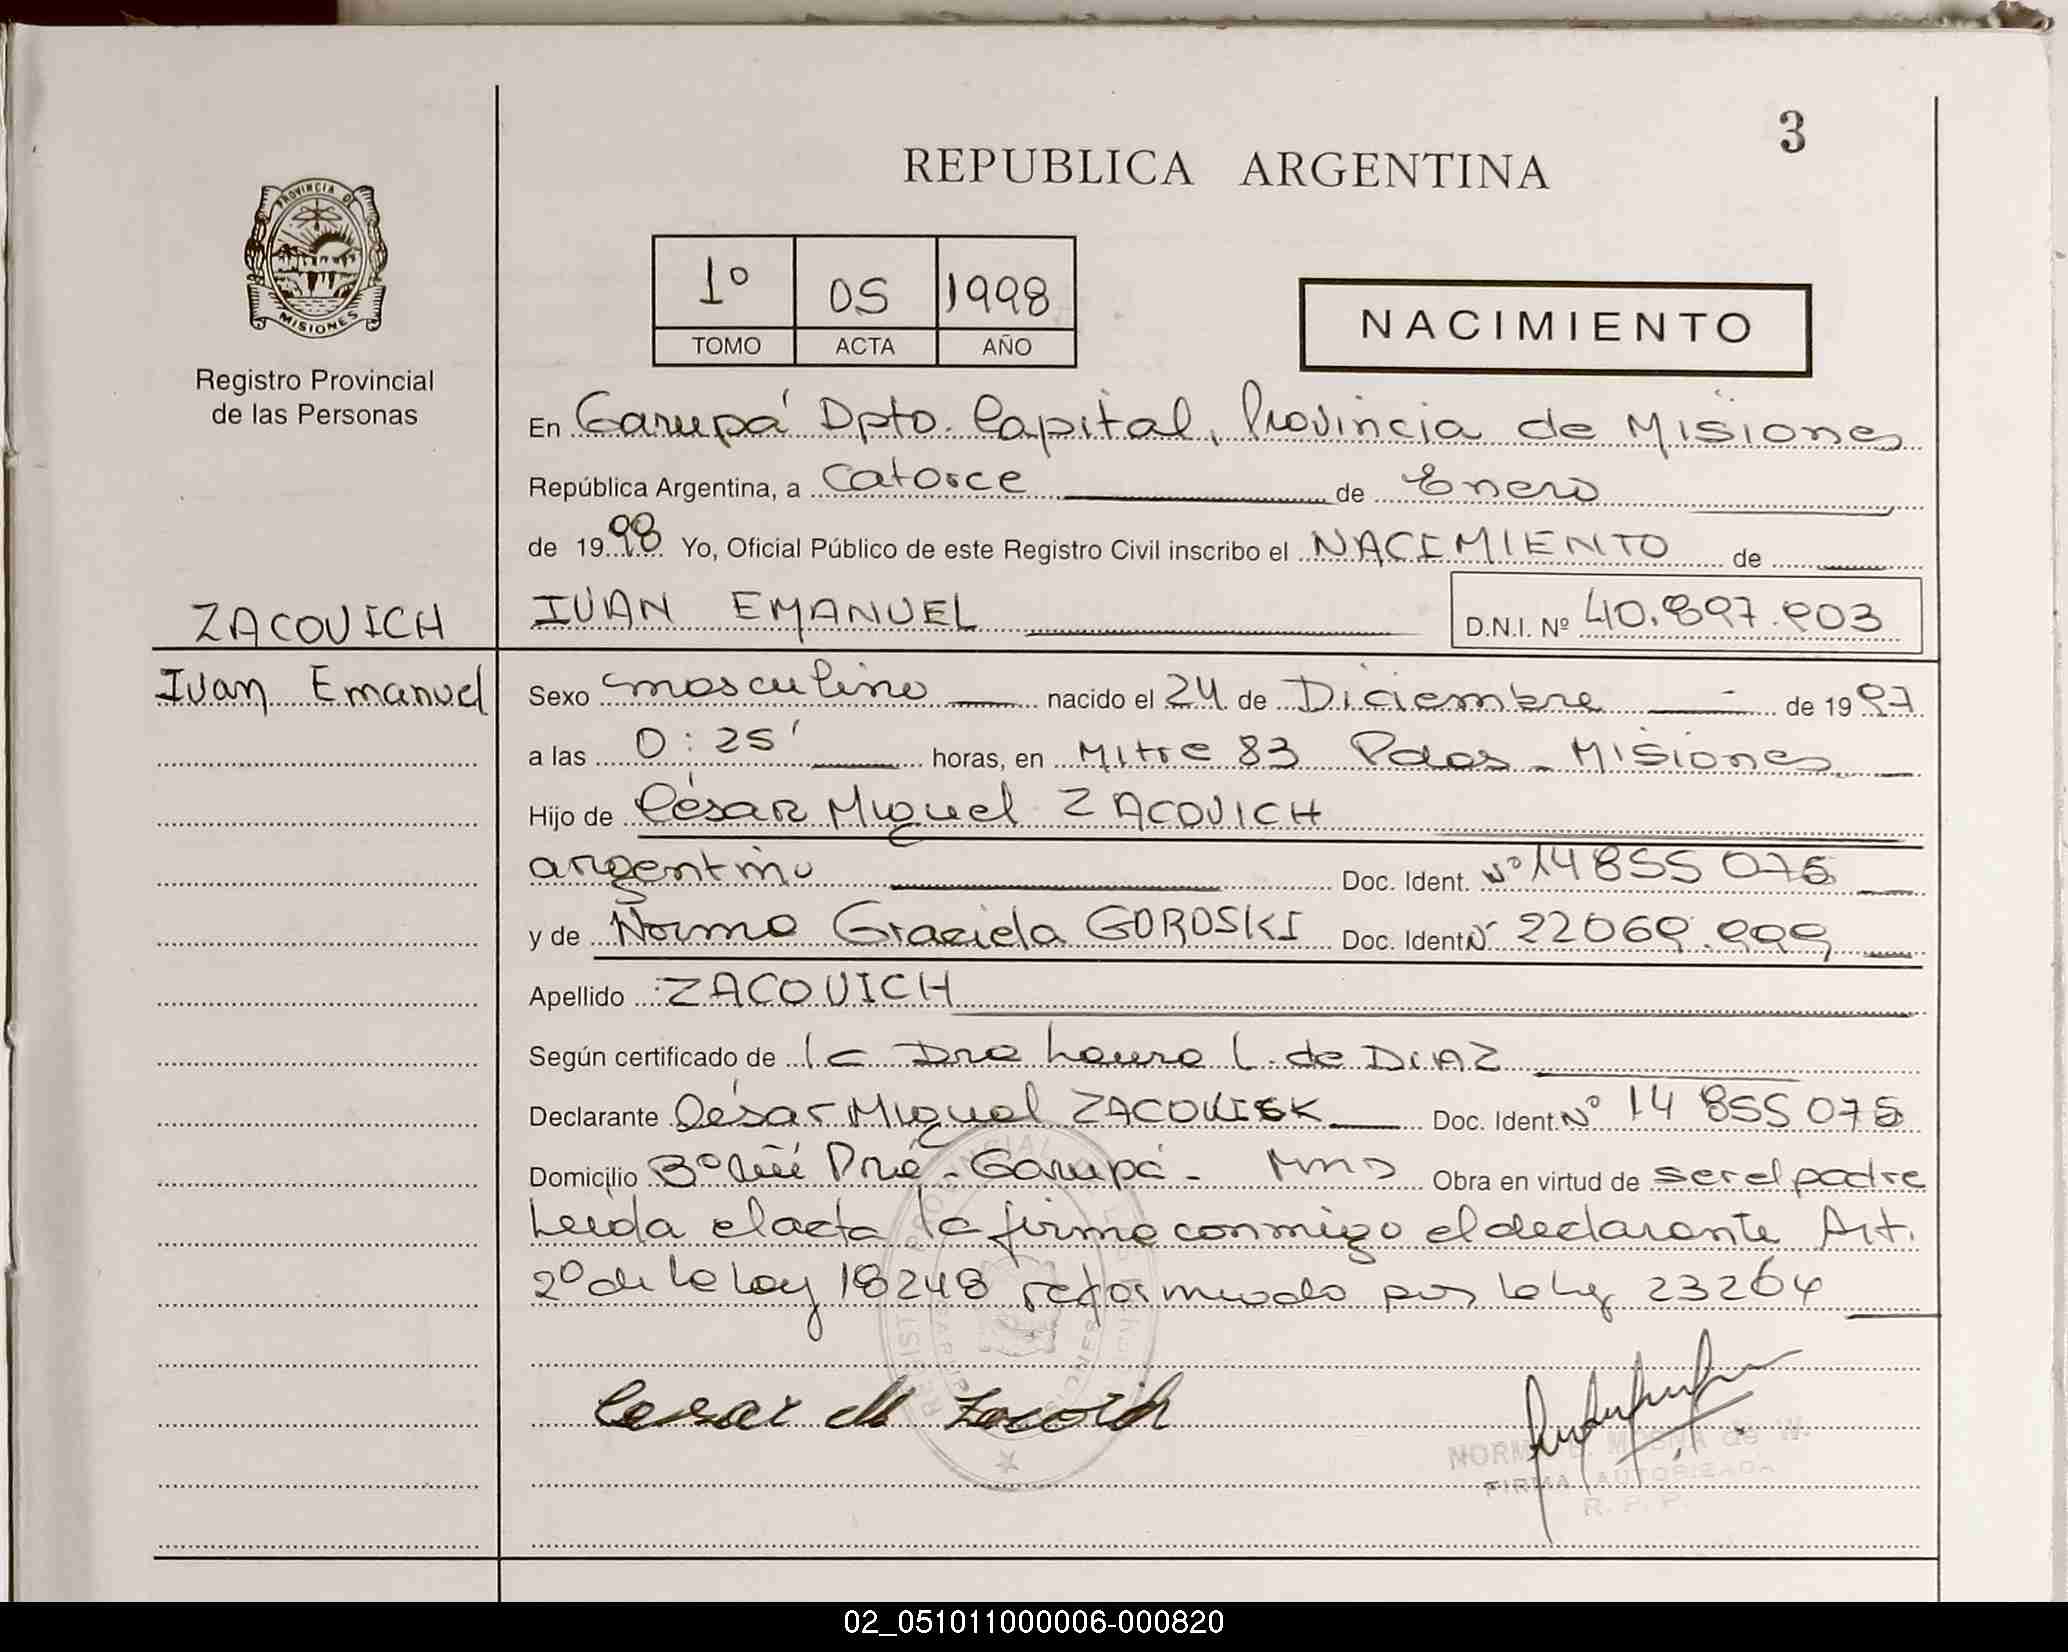 3
REPUBLICA ARGENTINA
PROVINCIA DE
MISIONES
Registro Provincial
de las Personas
1º 05 1998
TOMO ACTA AÑO
NACIMIENTO
En Garupá Dpto. Capital, Provincia de Misiones
República Argentina, a Catorce de Enero
de 1998 Yo, Oficial Público de este Registro Civil inscribo el NACIMIENTO de
ZACOVICH IVAN EMANUEL D.N.I. Nº 40.897.903
Ivan Emanuel Sexo masculino nacido el 24 de Diciembre de 1997
a las 0:25' horas, en Mitre 83 Pdas - Misiones
Hijo de César Miguel ZACOVICH
argentino Doc. Ident. Nº 14855075
y de Norma Graciela GOROSKI Doc. Ident Nº 22069.999
Apellido ZACOVICH
Según certificado de la Dra Laura L. de DIAZ
Declarante César Miguel Doc. Ident. Nº 14 855 075
Domicilio Bº Ñu Porá - Garupá - Mnes Obra en virtud de ser el padre
Leída el acta la firma conmigo el declarante Art.
2º de la Ley 18248 reformado por la Ley 23264
Cesar M Zacovich
NORMA MOSNA de W.
FIRMA AUTORIZADA
R. P. P.
02_051011000006-000820